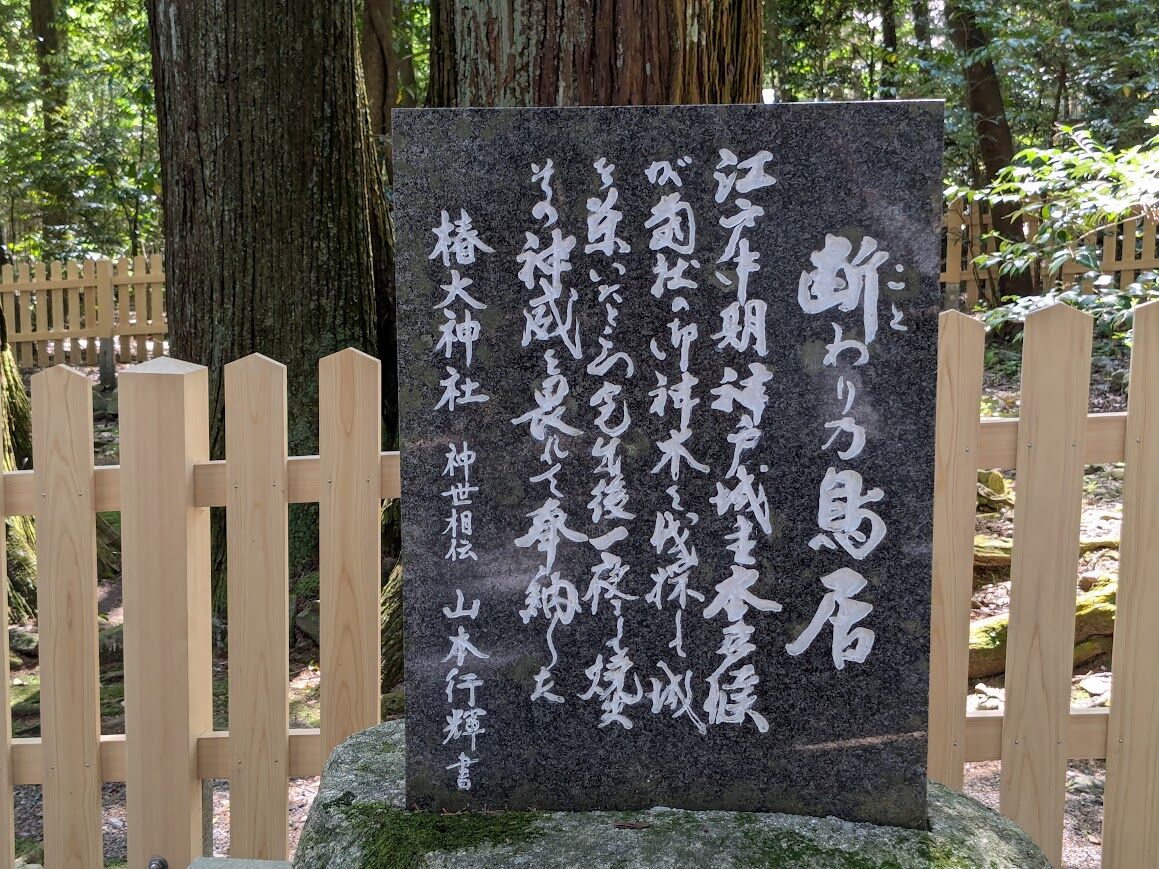 断わり乃鳥居
こと
江戸中期神戸城主本多候
が當社の御神木を伐採し城
を築いたところ完成後一夜にし焼失
その神威を畏れて奉納した
椿大神社 神世相伝 山本行輝書